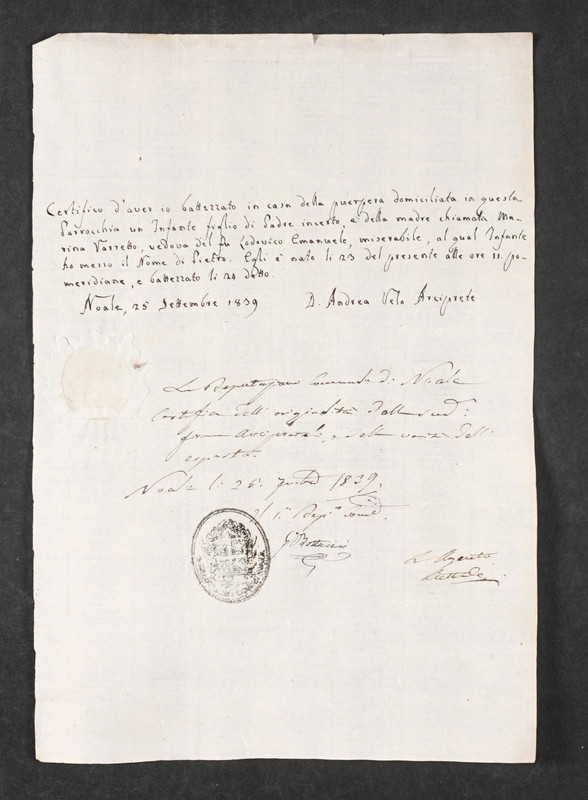 Certifico d'aver io battezzato in casa della puerpera domiciliata in questa
Parrocchia un Infante figlio di Padre incerto, e della madre chiamata Ma-
rina Varretto, vedova del fu Lodovico Emanuele, miserabile, al qual Infante
ho messo il Nome di Pietro. Egli è nato li 23 del presente alle ore 11. po-
meridiane, e battezzato li 24 detto.
Noale, 25 Settembre 1839 D. Andrea Velo Arciprete
La Deputazione Comunale di Noale
Certifica dell'originalità della sud:
firma Arcipretale, e della verità dell'
esposto.
Noale li 26 1839.
Il 1.º Dep.º Com.
L'Agente